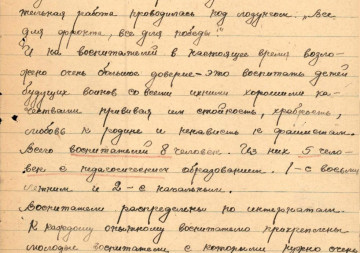 тельная работа проводилась под лозунгом: „Все
для фронта, все для победы!“
И на воспитателей в настоящее время возло-
жено очень большое доверие – это воспитать детей
будущих воинов со всеми ихними хорошими ка-
чествами прививая им стойкость, храбрость,
любовь к родине и ненависть к фашистам.
Всего воспитателей 8 человек. Из них 5 чело-
век с педагогическим образованием. 1 – с восьми
летним и 2 – с начальным.
Воспитатели распределены по интернатам.
К каждому опытному воспитателю прикреплены
молодые воспитатели, с которыми нужно очень